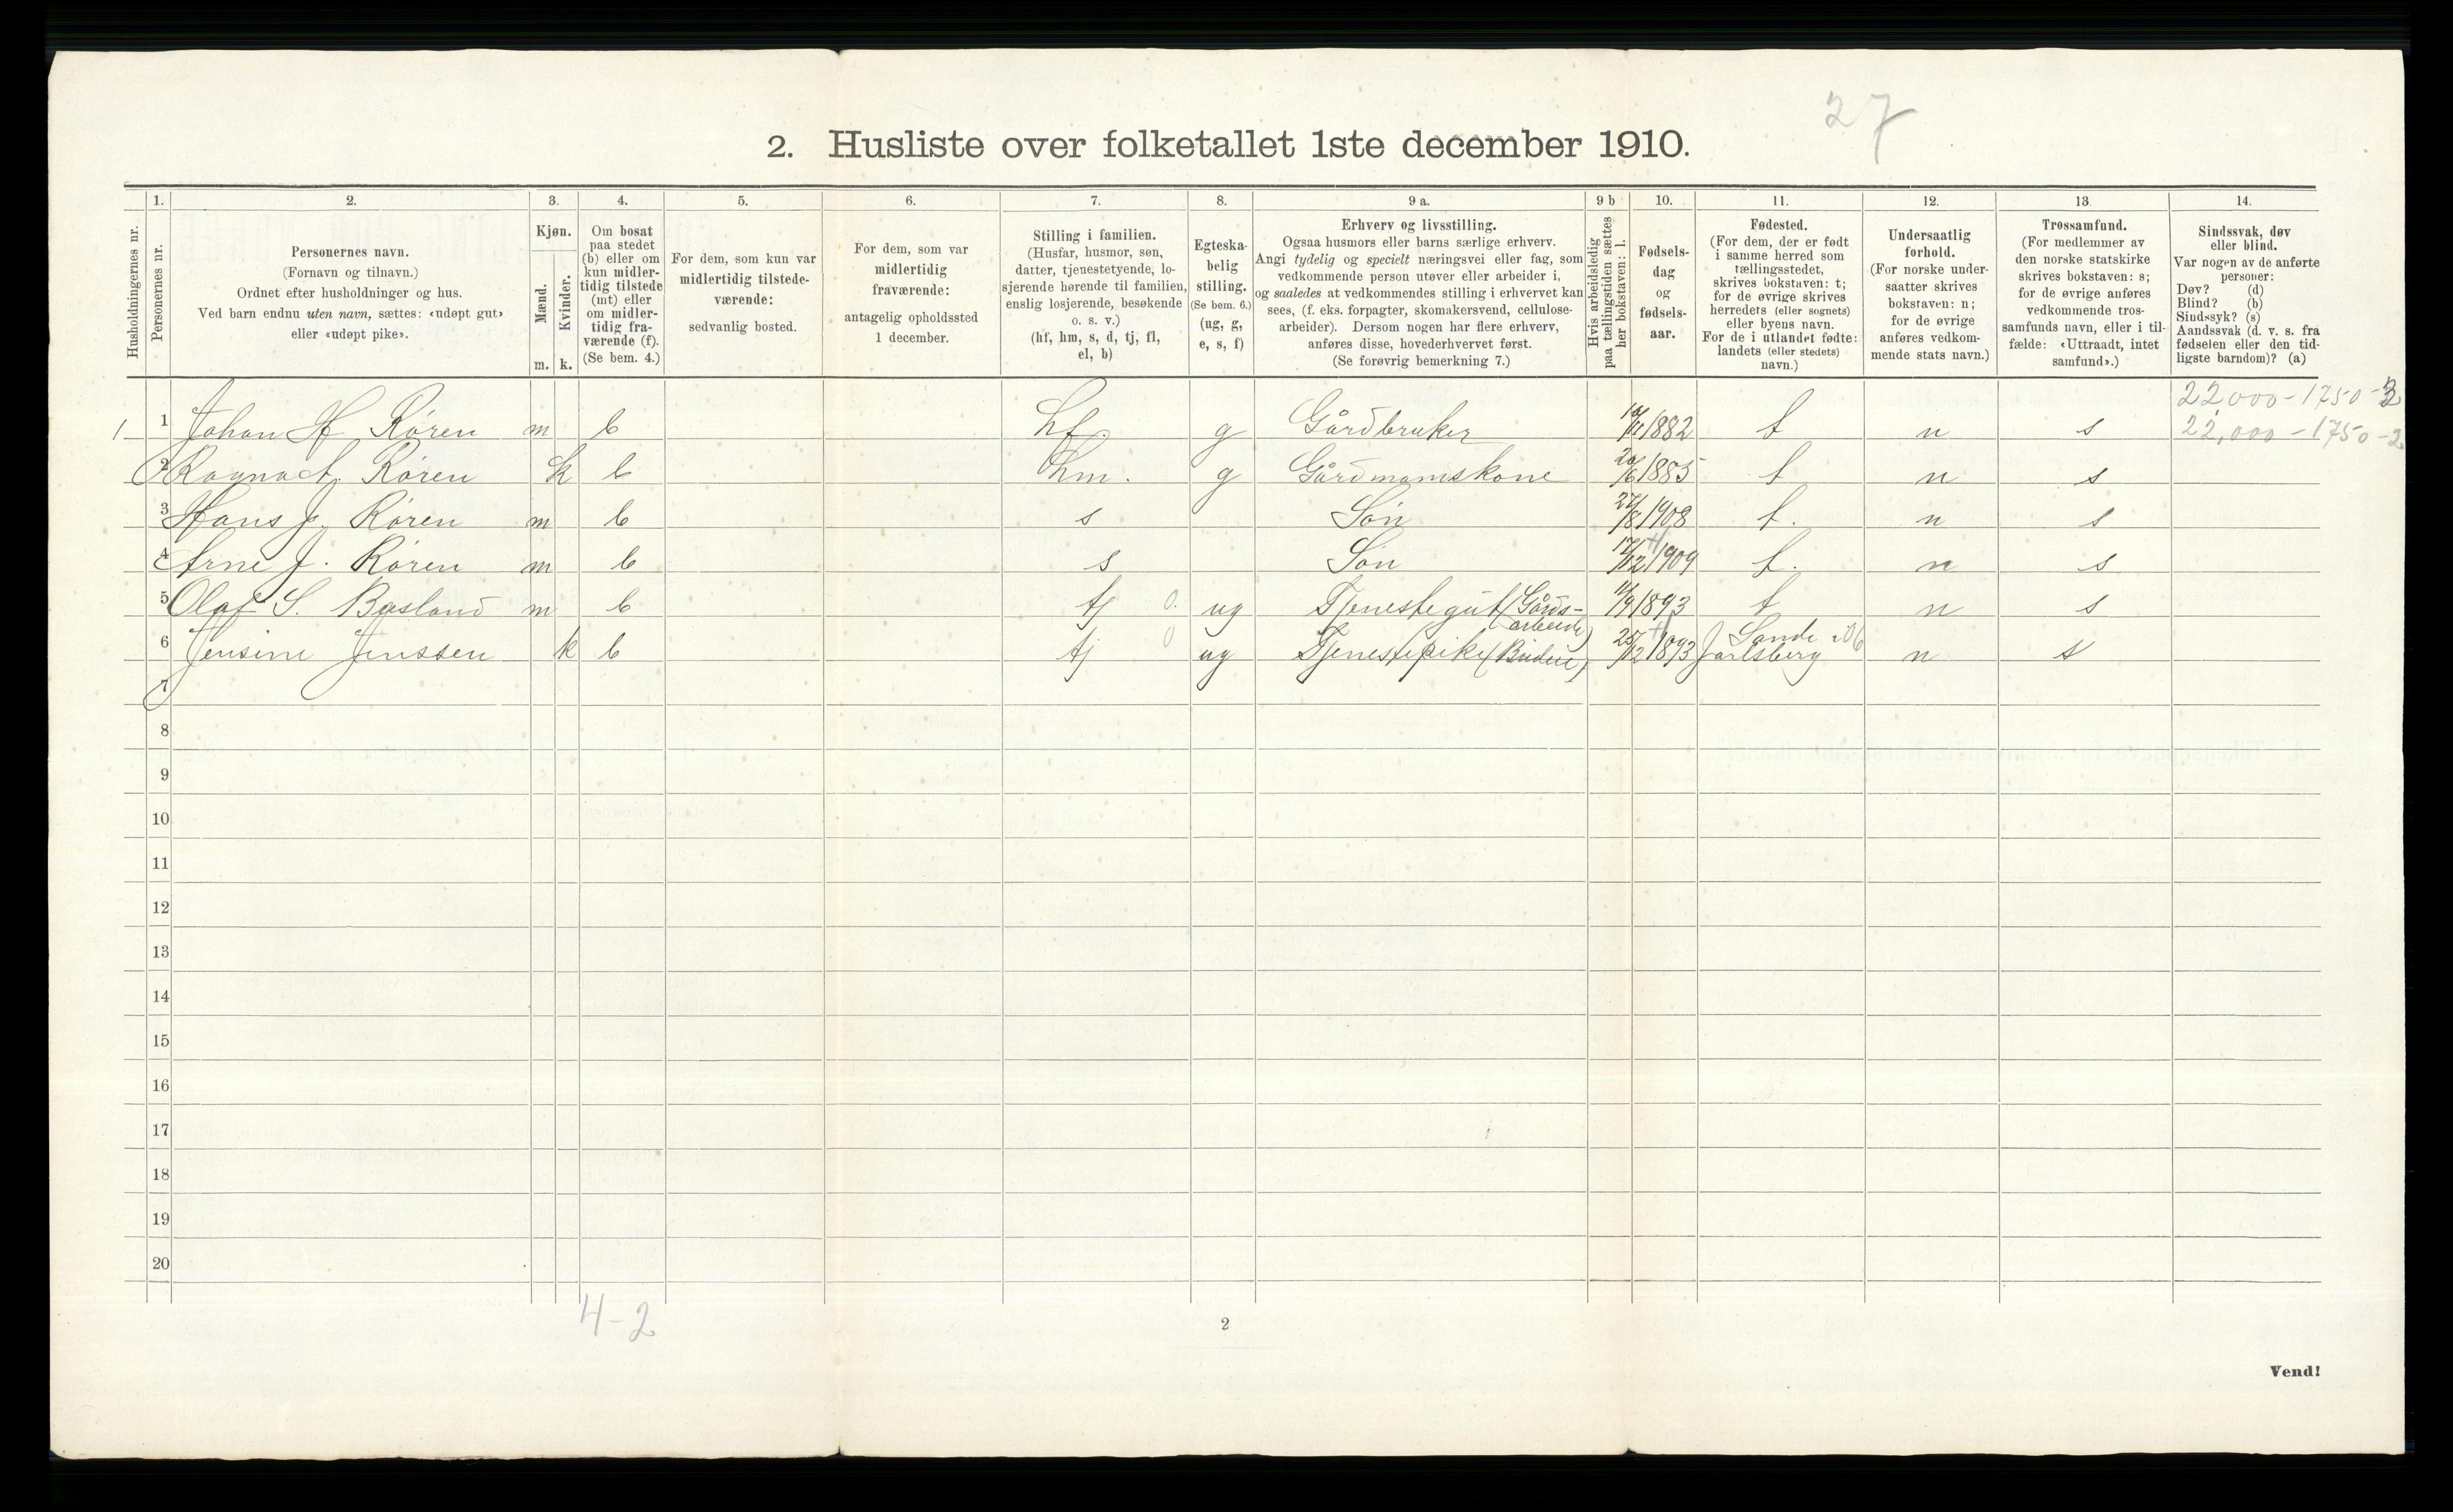 27
2. Husliste over folketallet 1ste december 1910.
Husholdningernes nr.
1.
Personernes nr.
2.
Personernes navn.
(Fornavn og tilnavn.)
Ordnet efter husholdninger og hus.
Ved barn endnu uten navn, sættes: «udøpt gut»
eller «udøpt pike».
3.
Kjøn.
Mænd.
Kvinder.
m. k.
4.
Om bosat
paa stedet
(b) eller om
kun midler-
tidig tilstede
(mt) eller
om midler-
tidig fra-
værende (f).
(Se bem. 4.)
5.
For dem, som kun var
midlertidig tilstede-
værende:
sedvanlig bosted.
6.
For dem, som var
midlertidig
fraværende:
antagelig opholdssted
1 december.
7.
Stilling i familien.
(Husfar, husmor, søn,
datter, tjenestetyende, lo-
sjerende hørende til familien,
enslig losjerende, besøkende
o. s. v.)
(hf, hm, s, d, tj, fl,
el, b)
8.
Egteska-
belig
stilling.
(Se bem. 6.)
(ug, g,
e, s, f)
9 a.
Erhverv og livsstilling.
Ogsaa husmors eller barns særlige erhverv.
Angi tydelig og specielt næringsvei eller fag, som
vedkommende person utøver eller arbeider i,
og saaledes at vedkommendes stilling i erhvervet kan
sees, (f. eks. forpagter, skomakersvend, cellulose-
arbeider). Dersom nogen har flere erhverv,
anføres disse, hovederhvervet først.
(Se forøvrig bemerkning 7.)
9 b
Hvis arbeidsledig
paa tællingstiden sættes
her bokstaven: l.
10.
Fødsels-
dag
og
fødsels-
aar.
11.
Fødested.
(For dem, der er født
i samme herred som
tællingsstedet,
skrives bokstaven: t;
for de øvrige skrives
herredets (eller sognets)
eller byens navn.
For de i utlandet fødte:
landets (eller stedets)
navn.)
12.
Undersaatlig
forhold.
(For norske under-
saatter skrives
bokstaven: n;
for de øvrige
anføres vedkom-
mende stats navn.)
13.
Trossamfund.
(For medlemmer av
den norske statskirke
skrives bokstaven: s;
for de øvrige anføres
vedkommende tros-
samfunds navn, eller i til-
fælde: «Uttraadt, intet
samfund».)
14.
Sindssvak, døv
eller blind.
Var nogen av de anførte
personer:
Døv? (d)
Blind? (b)
Sindssyk? (s)
Aandssvak (d. v. s. fra
fødselen eller den tid-
ligste barndom)? (a)
22000-1750-
1 1 Johan H Røren m b hf. g Gårdbruker 1882 t n s 22,000-1750-2
2 Røren k b hm. g Gårdmanskone 20/6 1885 t n s
3 Hans J. Røren m b s Søn 27/8 1908 t. n s
4 Arne J. Røren m b s Søn 17/12 1909 t. n s
5 Olaf S. m b tj 0. ug Tjenestegut (Gårds-
arbeide) 1893 t n s
6 Jensine Jenssen k b tj 0 ug Tjenestepike (Budeie) 25/12 1893 Sande
Jarlsberg n s
7
8
9
10
11
12
13
14
15
16
17
18
19
20
4-2
2
Vend!